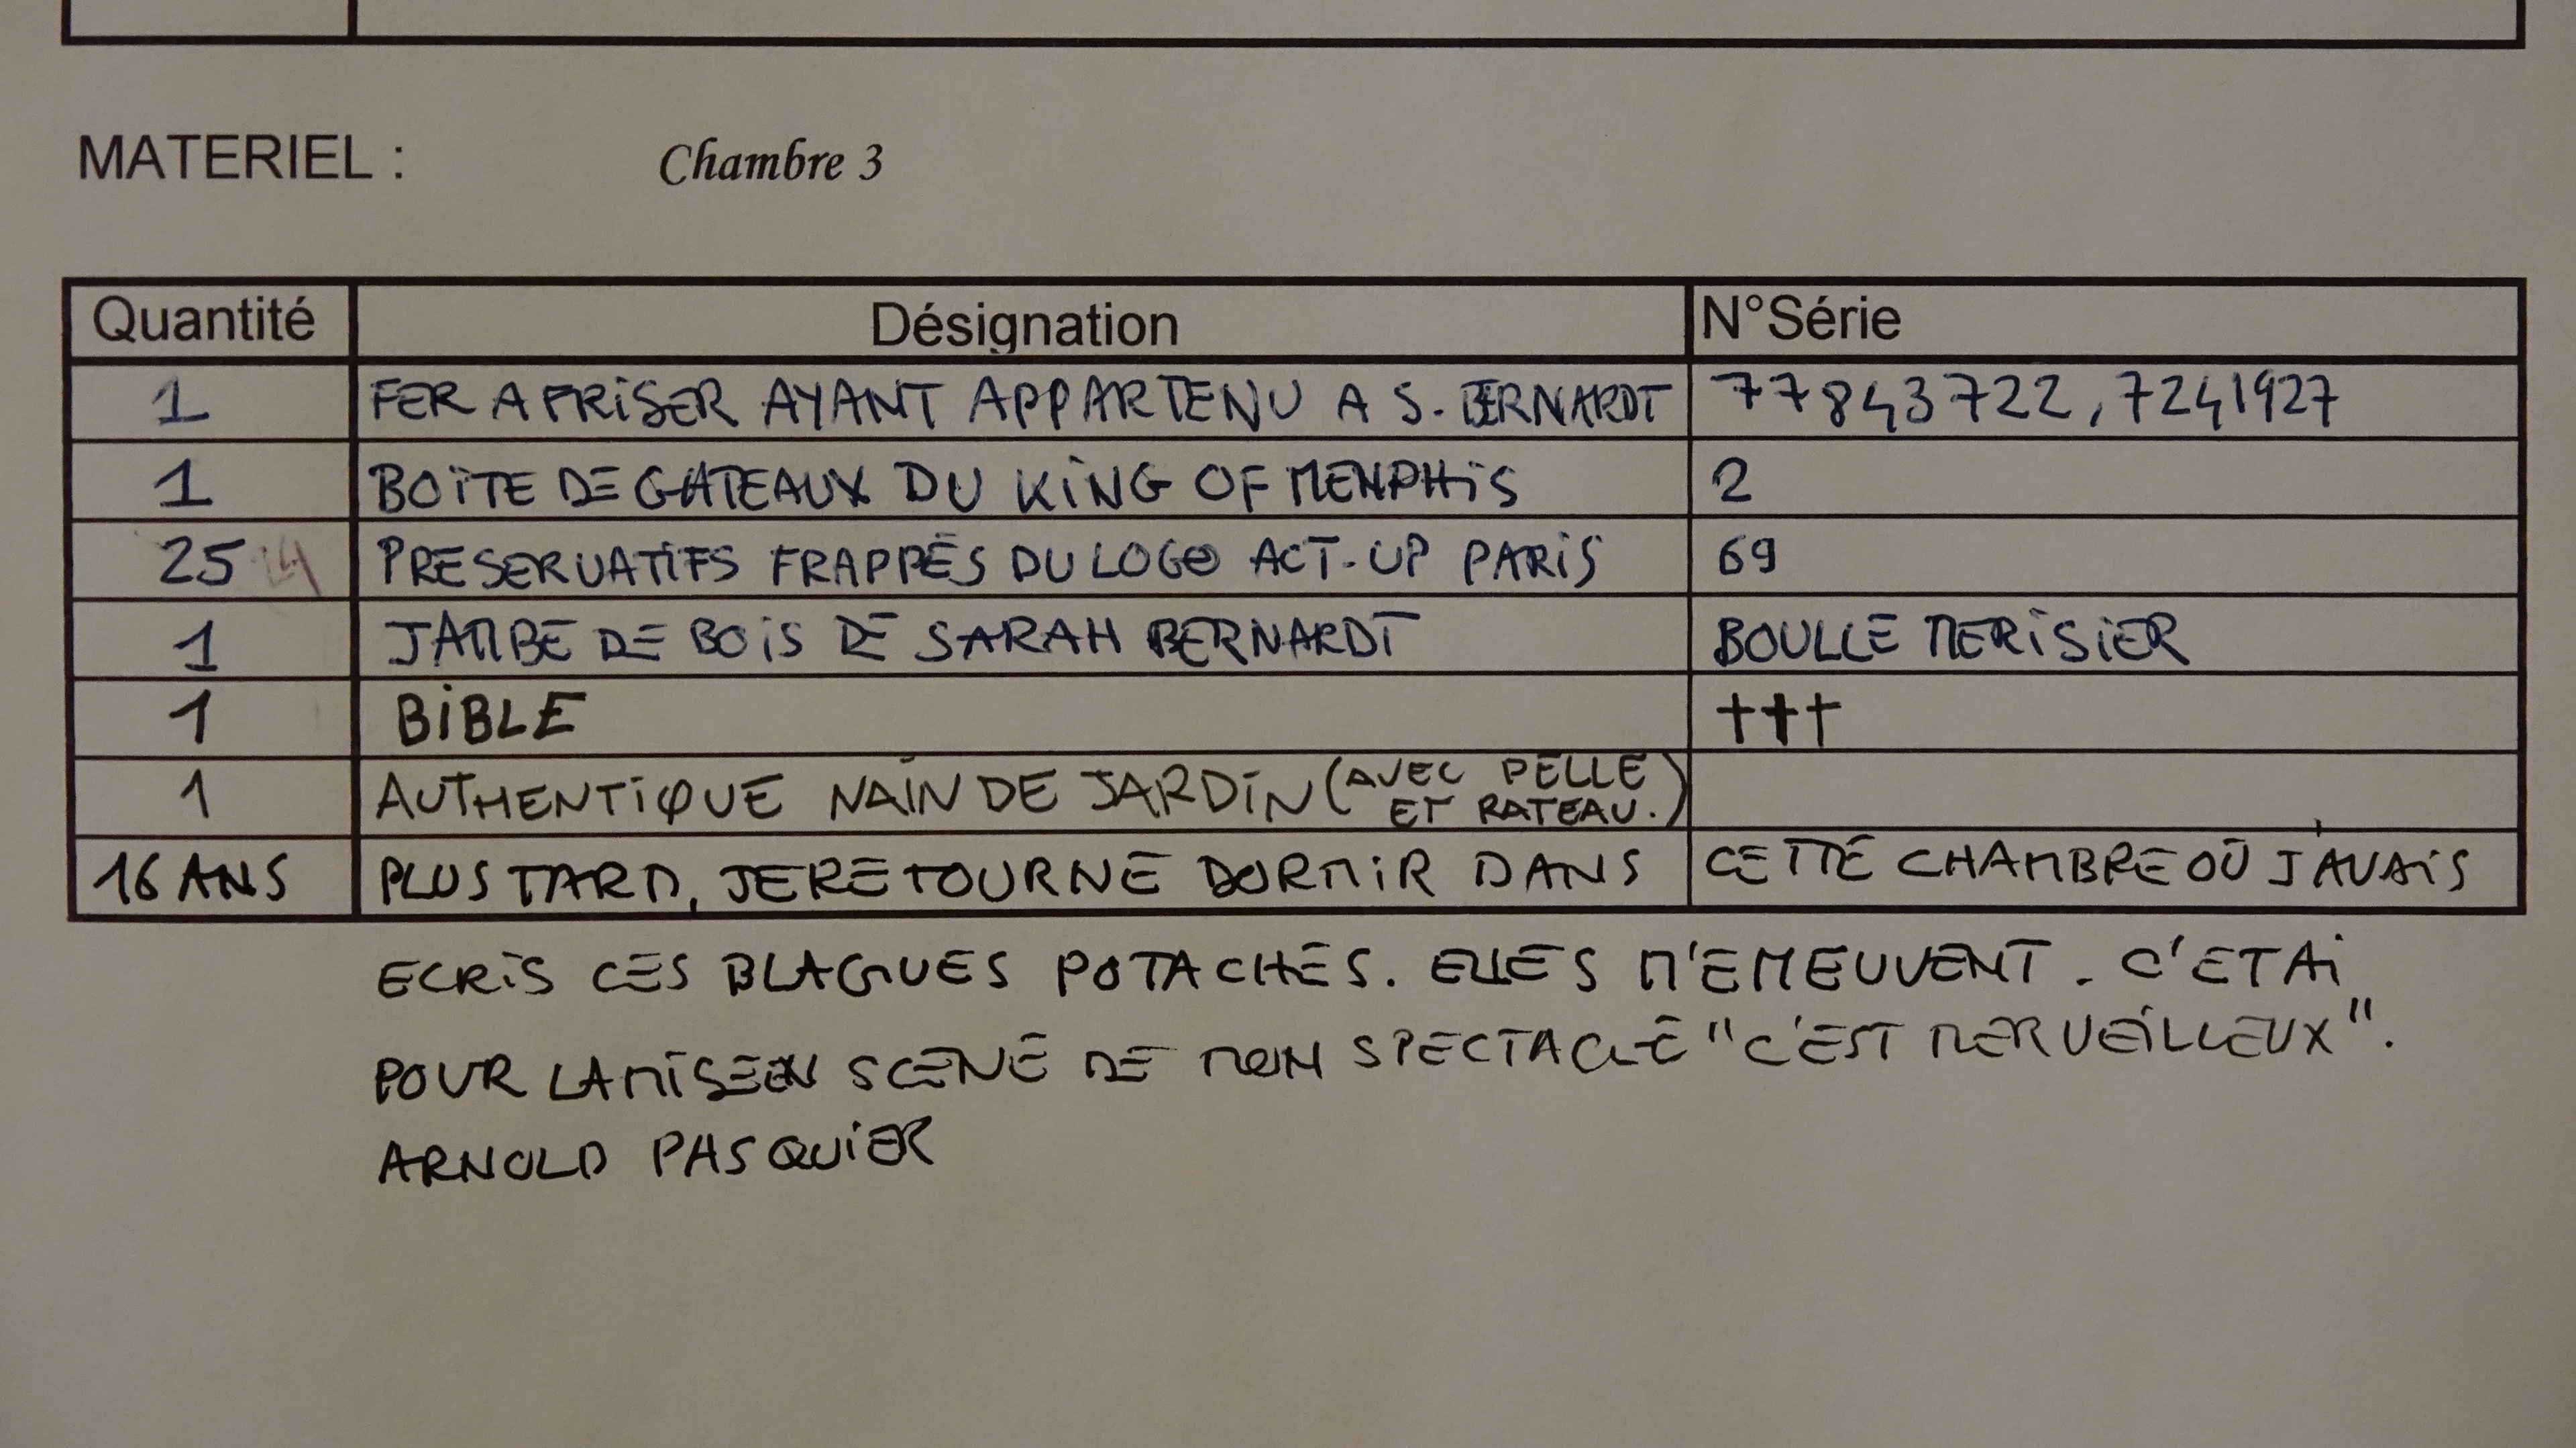 MATERIEL : Chambre 3
Quantité Désignation N°Série
1 FER A FRISER AYANT APPARTENU A S. BERNARDT 77843722,7241927
1 BOITE DE GATEAUX DU KING OF MEMPHIS 2
25 24 PRESERVATIFS FRAPPÉS DU LOGO ACT-UP PARIS 69
1 JAMBE DE BOIS DE SARAH BERNARDT BOULLE MERISIER
1 BIBLE †††
1 AUTHENTIQUE NAIN DE JARDIN (AVEC PELLE
ET RATEAU.)
16 ANS PLUS TARD, JE RETOURNE DORMIR DANS CETTE CHAMBRE OÙ J'AVAIS
ECRIS CES BLAGUES POTACHES. ELLES M'EMEUVENT. C'ETAI
POUR LA MISE EN SCENE DE MON SPECTACLE "C'EST MERVEILLEUX".
ARNOLD PASQUIER